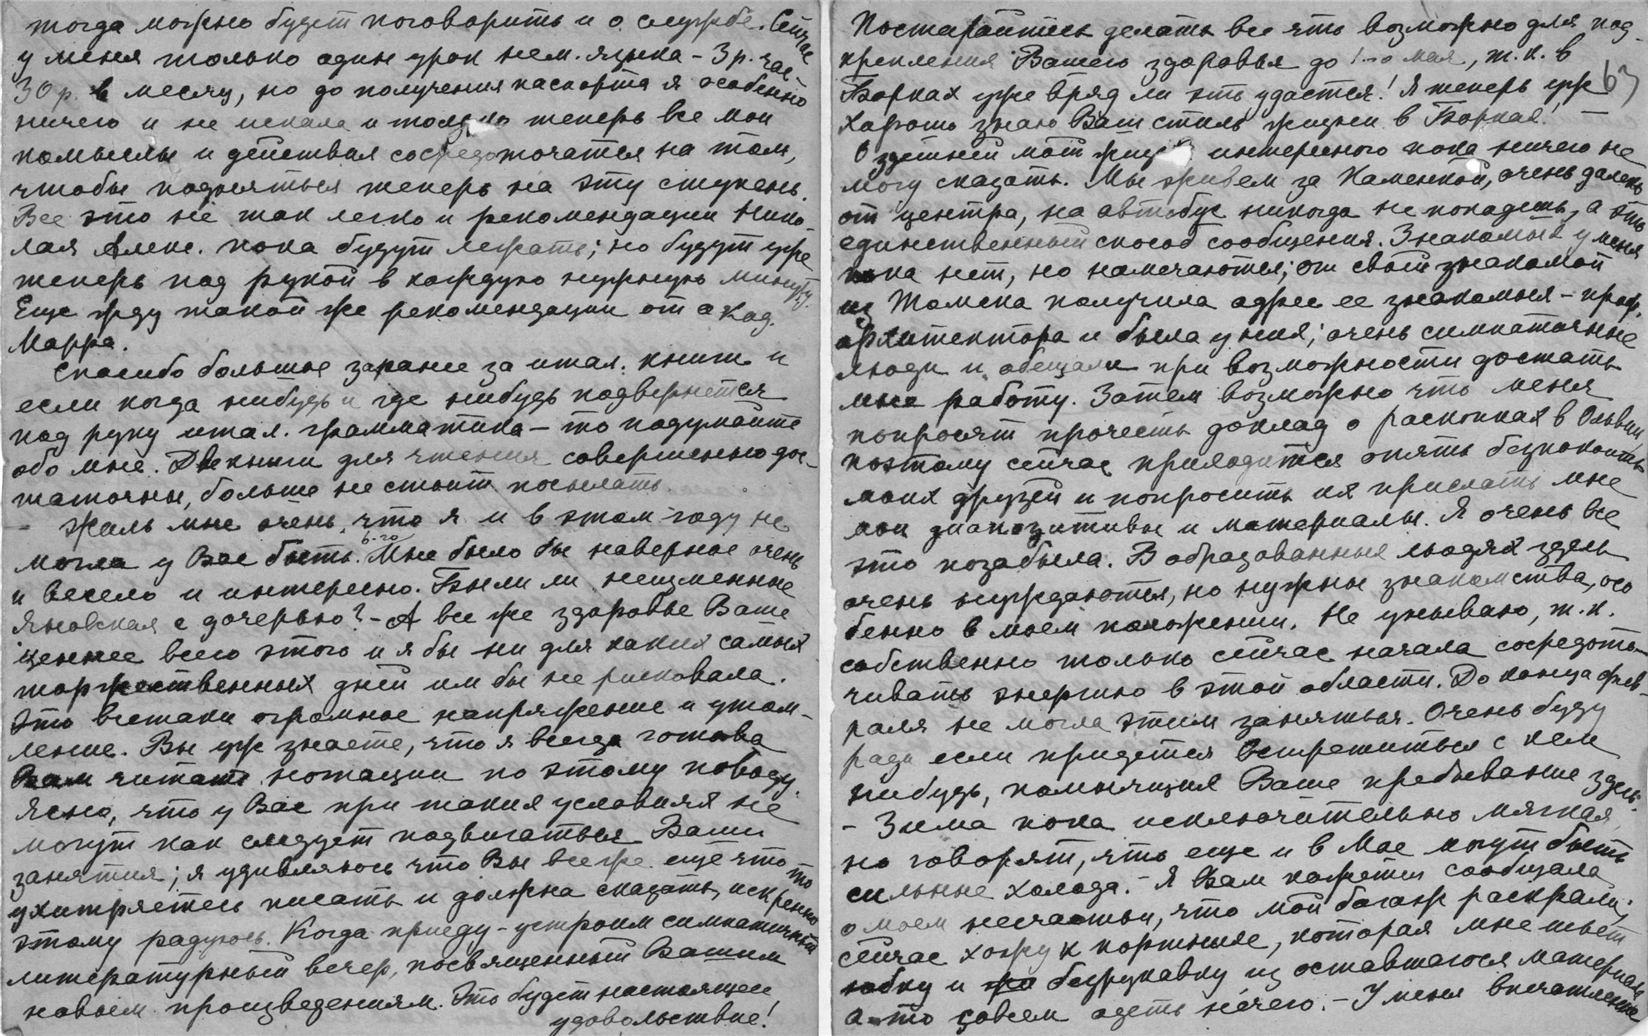 тогда можно будет поговорить и о службе. Сейчас
у меня только один урок нем. языка – 3 р. час –
30 р. в месяц, но до получения паспорта я особенно
ничего и не искала и только теперь все мои
помыслы и действия сосредоточатся на том,
чтобы подняться теперь на эту ступень.
Все это не так легко и рекомендации Нико-
лая Алекс. пока будут лежать; но будут уже
теперь под рукой в каждую нужную минуту.
Еще жду такой же рекомендации от акад.
Марра.
Спасибо большое заранее за итал. книги и
если когда нибудь и где нибудь подвернется
под руку итал. грамматика – то подумайте
обо мне. Две книги для чтения совершенно дос-
таточны, больше не стоит посылать.
– Жаль мне очень, что я и в этом году не
могла у Вас быть 6-го. Мне было бы наверное очень
и весело и интересно. Были ли неизменные
Яновская с дочерью? – А все же здоровье Ваше
ценнее всего этого и я бы ни для каких самых
торжественных дней им бы не рисковала.
Это все таки огромное напряжение и утом-
ление. Вы уж знаете, что я всегда готова
Вам читать нотации по этому поводу.
Ясно, что у Вас при таких условиях не
могут как следует подвигаться Ваши
занятия; я удивляюсь что Вы все же еще что то
ухитряетесь писать и должна сказать, искренно
этому радуюсь. Когда приеду – устроим симпатичный
литературный вечер, посвященный Вашим
новым произведениям. Это будет настоящее
удовольствие!
Постарайтесь делать все что возможно для под-
крепления Вашего здоровья до 1-го мая, т.к. в
Борках уже вряд ли это удастся! Я теперь уж
63
хорошо знаю Ваш стиль жизни в Борках! –
О здешней моей жизни интересного пока ничего не
могу сказать. Мы живем за Каменкой, очень далеко
от центра, на автобус никогда не попадешь, а это
единственный способ сообщения. Знакомых у меня
пока нет, но намечаются; от своей знакомой
из Томска получила адрес ее знакомых – проф.
архитектора и была у них; очень симпатичные
люди и обещали при возможности достать
мне работу. Затем возможно что меня
попросят прочесть доклад о раскопках в Ольвии
поэтому сейчас приходится опять беспокоить
моих друзей и попросить их прислать мне
мои диапозитивы и материалы. Я очень все
это позабыла. В образованных людях здесь
очень нуждаются, но нужны знакомства, осо
бенно в моем положении. Не унываю, т.к.
собственно только сейчас начала сосредота-
чивать энергию в этой области. До конца фев-
раля не могла этим заняться. Очень буду
рада если придется встретиться с кем
нибудь, помнящим Ваше пребывание здесь.
– Зима пока исключительно мягкая,
но говорят, что еще и в Мае могут быть
сильные холода. – Я Вам кажется сообщала
о моем несчастьи, что мой багаж раскрали;
сейчас хожу к портнихе, которая мне шьет
юбку и безрукавку из оставшагося материала
а то совсем одеть нечего. – У меня впечатление